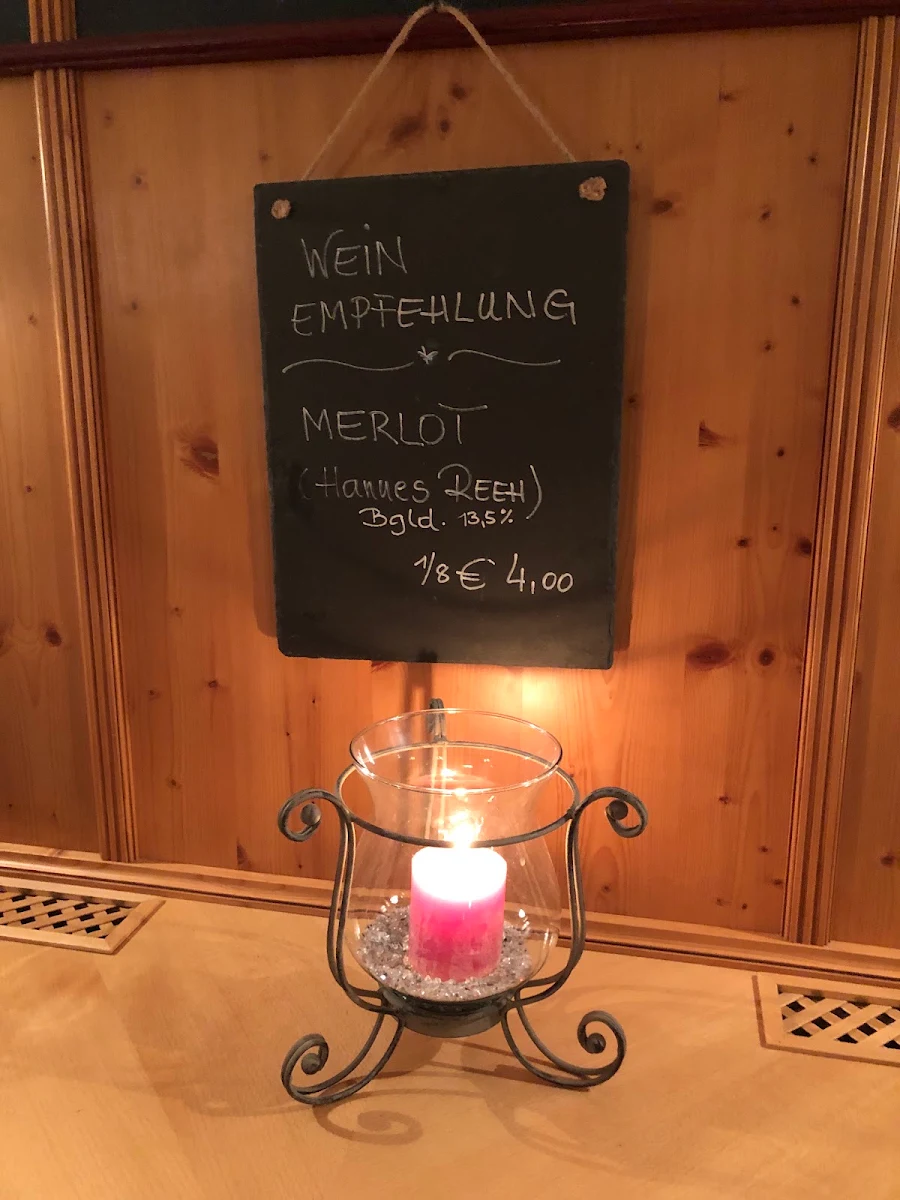 WEIN
EMPFEHLUNG
MERLOT
(Hannes REEH)
Bgld. 13,5%
1/8 € 4,00